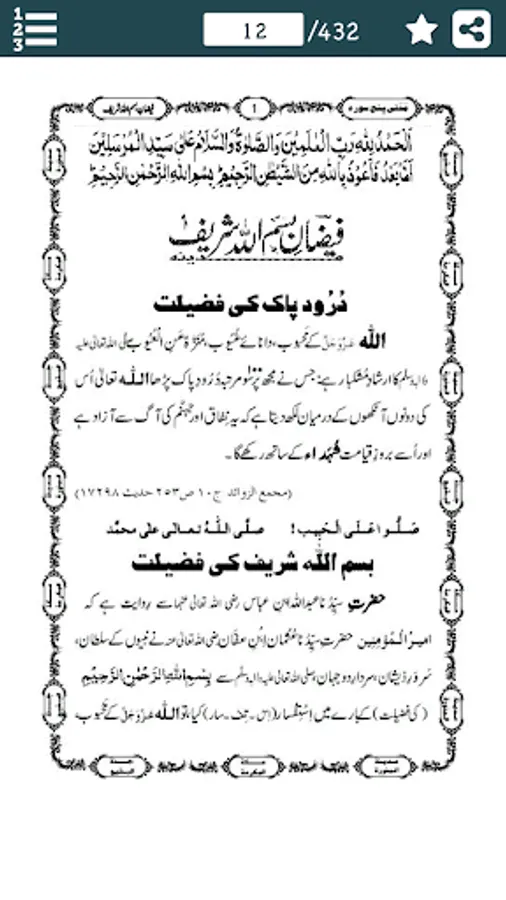 1
2
3
12
/432
مدنی پنج سورہ
1
فیضانِ بسم اللہ شریف
اَلْحَمْدُ لِلّٰهِ رَبِّ الْعٰلَمِیْنَ وَالصَّلٰوةُ وَالسَّلَامُ عَلٰی سَیِّدِ الْمُرْسَلِیْنَ
اَمَّا بَعْدُ فَاَعُوْذُ بِاللّٰهِ مِنَ الشَّیْطٰنِ الرَّجِیْمِ بِسْمِ اللّٰهِ الرَّحْمٰنِ الرَّحِیْمِ
فیضانِ بسم اللہ شریف
دُرُود پاک کی فضیلت
اللہ عَزَّوَجَلَّ کے مَحبوب، دانائے غُیُوب، مُنَزَّہٌ عَنِ الْعُیُوب صلی اللہ تعالیٰ علیہ
واٰلہٖ وسلم کا ارشادِ مُشکبار ہے: جس نے مجھ پر سو مرتبہ دُرُودِ پاک پڑھا اللہ تعالیٰ اُس
کی دونوں آنکھوں کے درمیان لکھ دیتا ہے کہ یہ نِفاق اور جہنَّم کی آگ سے آزاد ہے
اور اُسے بروزِ قیامت شُہَداء کے ساتھ رکھے گا۔
(مجمع الزوائد ج ۱۰ ص ۲۵۳ حدیث ۱۷۲۹۸)
صَلُّوا عَلَی الْحَبِیب! صلَّی اللہُ تعالیٰ علٰی محمَّد
بسم اللہ شریف کی فضیلت
حضرتِ سیِّدُنا عبداللہ ابنِ عباس رضی اللہ تعالیٰ عنہما سے روایت ہے کہ
امیرُ الْمُؤمِنِین حضرتِ سیِّدُنا عُثمان اِبْنِ عَفّان رضی اللہ تعالیٰ عنہ نے نبیوں کے سلطان،
سَروَرِ ذیشان، سردارِ دو جہان، صلی اللہ تعالیٰ علیہ واٰلہٖ وسلم سے بِسْمِ اللّٰهِ الرَّحْمٰنِ الرَّحِیْمِ
(کی فضیلت) کے بارے میں اِسْتِفْسار (اِس۔تِف۔سار) کیا، تو اللہ عَزَّوَجَلَّ کے مَحبوب،